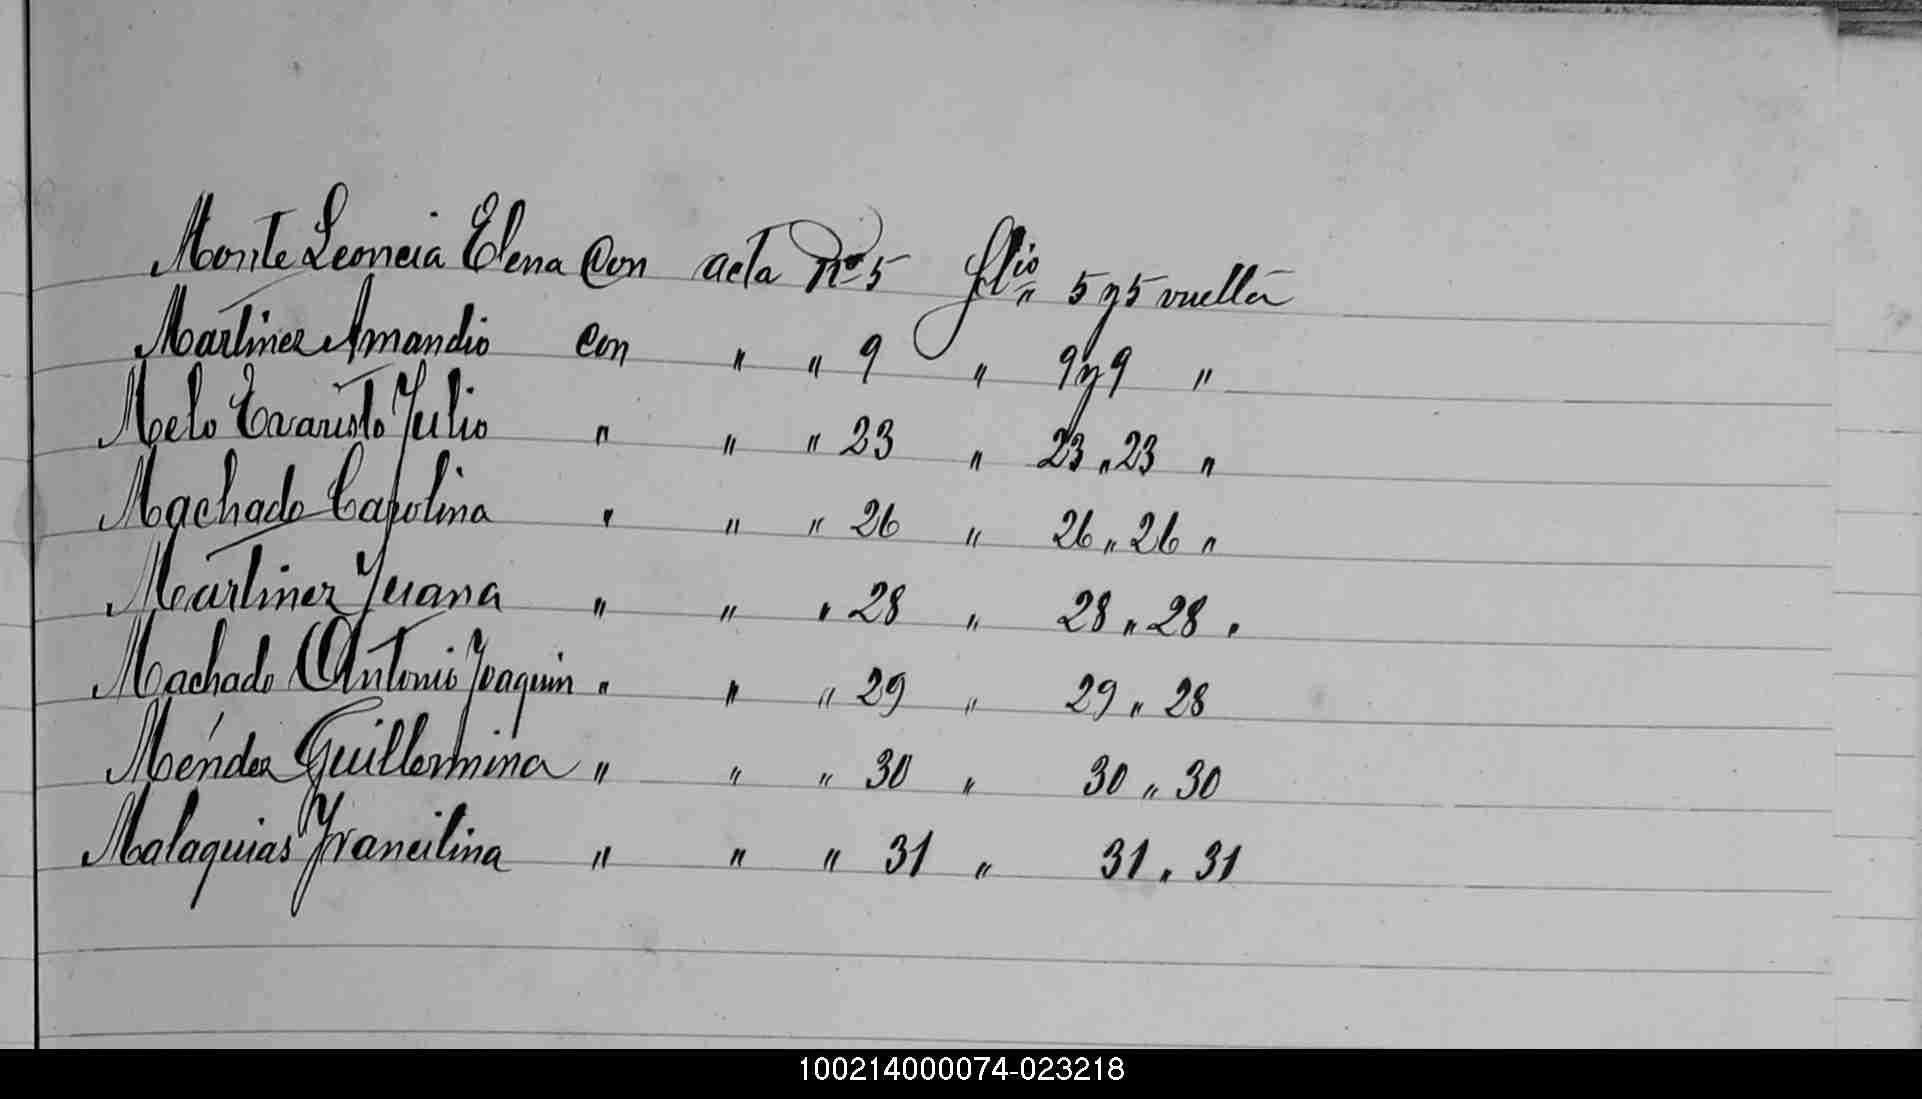 Monte Leoncia Elena con acta Nº 5 flio 5 y 5 vuelta
Martinez Amandio con " " 9 " 9 y 9 "
Melo Evaristo Julio " " " 23 " 23 " 23 "
Machado Carolina " " " 26 " 26 " 26 "
Martinez Juana " " " 28 " 28 " 28 "
Machado Antonio Joaquin " " " 29 " 29 " 28
Méndez Guillermina " " " 30 " 30 " 30
Malaquias Francilina " " " 31 " 31 " 31
100214000074-023218